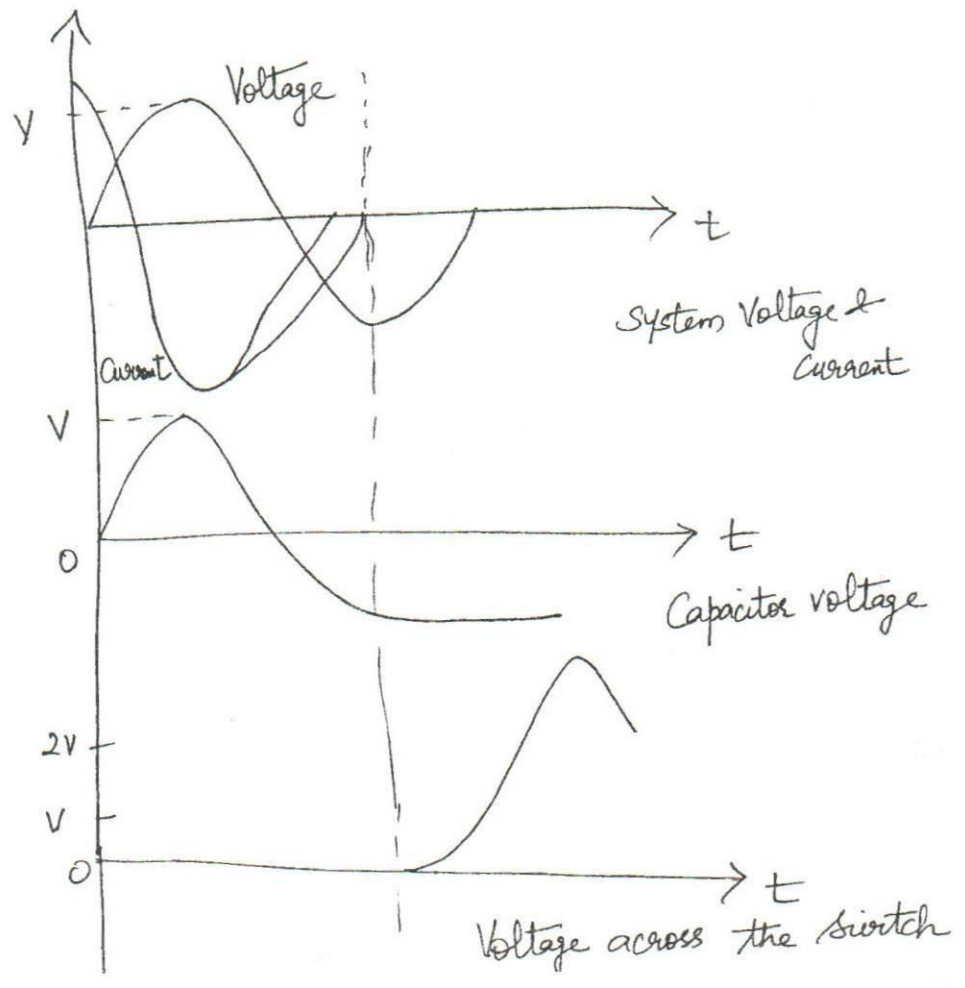 Voltage
V
t
System Voltage &
Current
Current
V
t
0
Capacitor voltage
2V
V
0
t
Voltage across the switch